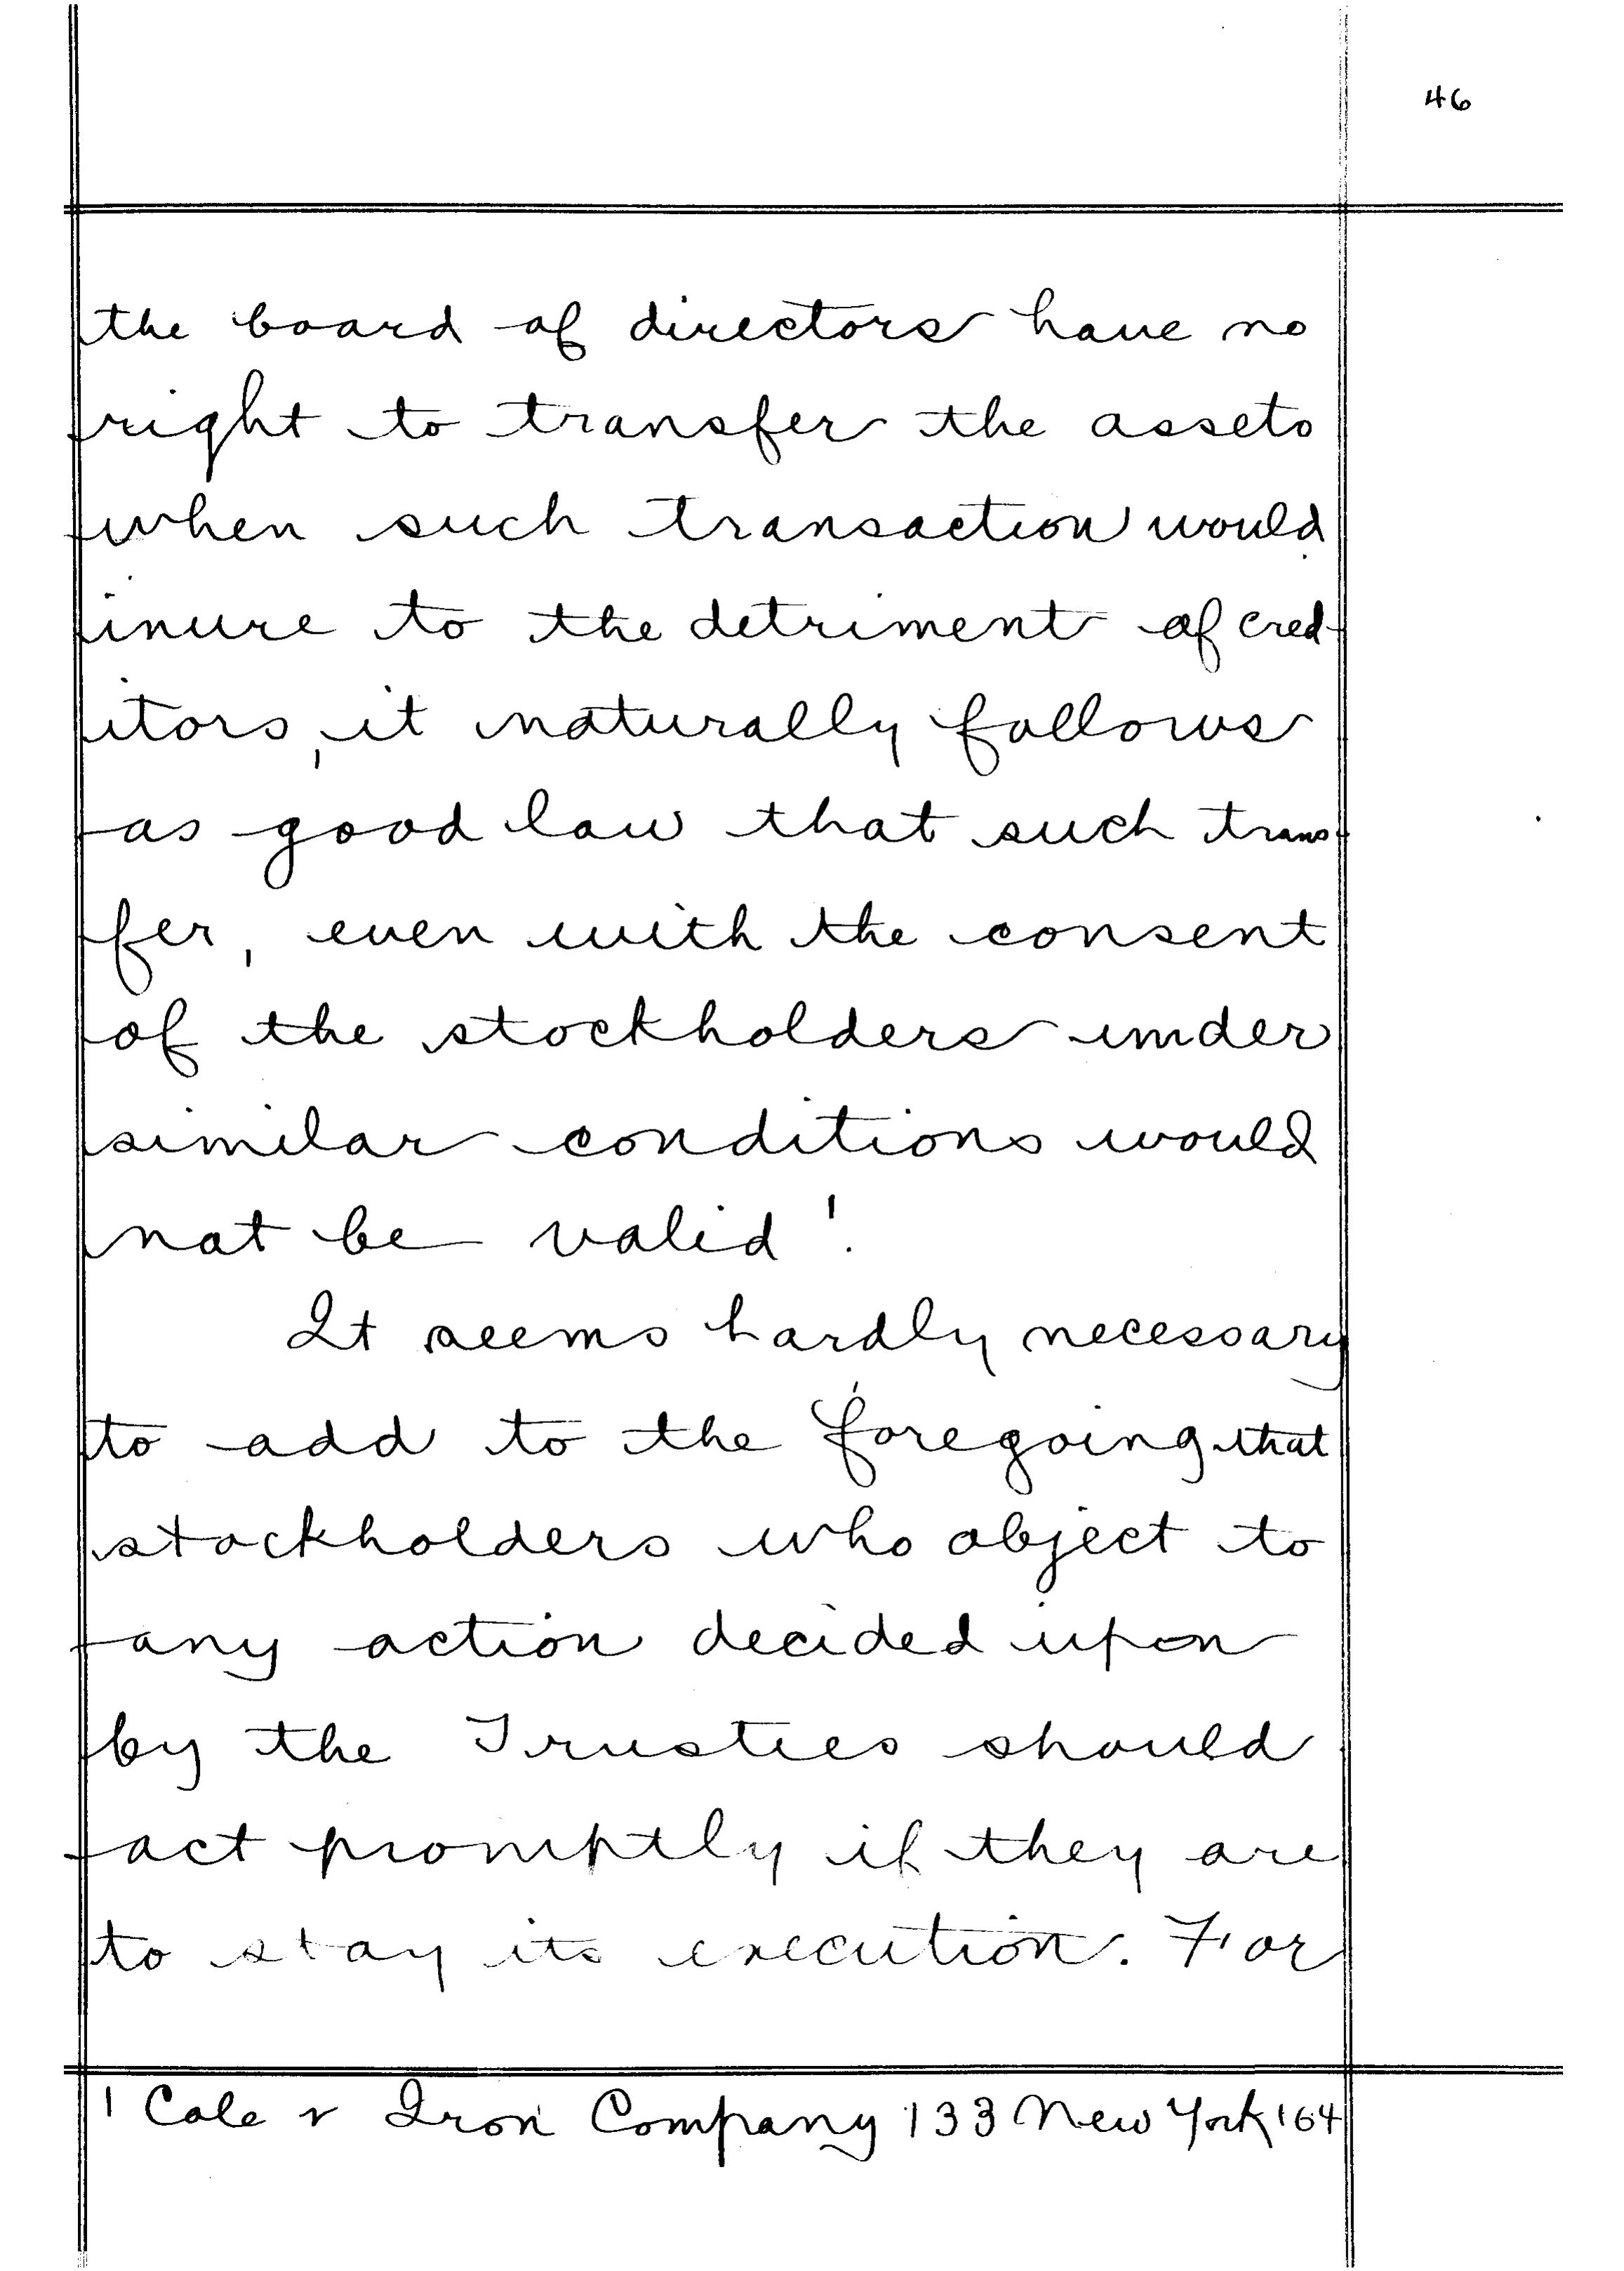 46
the board of directors have no
right to transfer the assets
when such transaction would
inure to the detriment of cred-
itors, it naturally follows
as good law that such trans-
fer, even with the consent
of the stockholders under
similar conditions would
not be valid¹.
It seems hardly necessary
to add to the foregoing that
stockholders who object to
any action decided upon
by the Trustees should
act promptly if they are
to stay its execution. For
1 Cole v Iron Company 133 New York 164